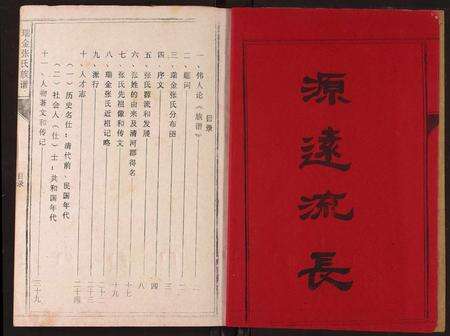 源遠流長
目录
一、伟人论《族谱》
二、题词 一
三、瑞金张氏分布图 二
四、序文 四
五、张氏源流和发展 八
六、张姓的由来及清河郡得名
七、张氏先祖像和传文 十七
八、瑞金张氏近祖记略 十九
九、派行 二十三
十、人才志 二十四
（一）历史名仕：清代前、民国年代
（二）社会人（仕）士：共和国年代
十一、人物著文和传记 三十九
瑞金张氏族谱
目录